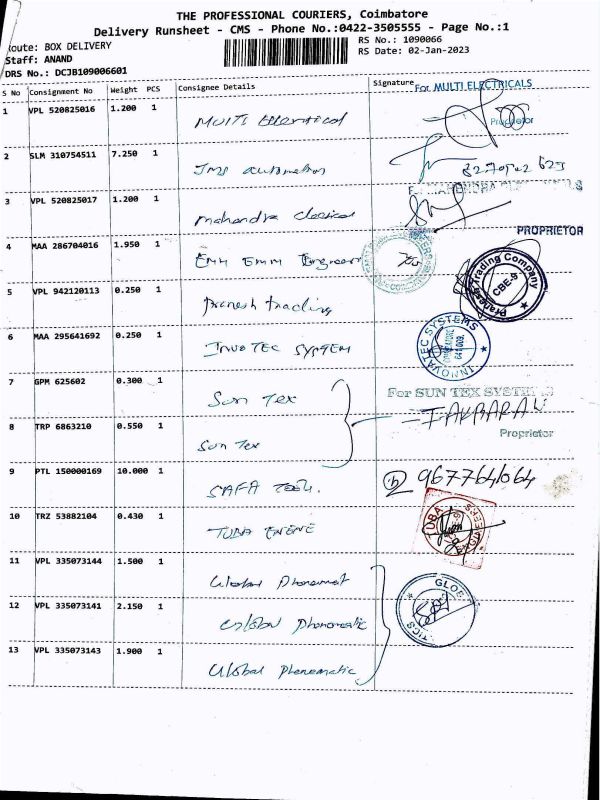 THE PROFESSIONAL COURIERS, Coimbatore
Delivery Runsheet - CMS - Phone No.:0422-3505555 - Page No.:1
Route: BOX DELIVERY
RS No.: 1090066
Staff: ANAND
RS Date: 02-Jan-2023
DRS No.: DCJB109006601
S No Consignment No Weight PCS Consignee Details Signature
For MULTI ELECTRICALS
1 VPL 520825016 1.200 1 MULTI Electrical
Proprietor
2 SLM 310754511 7.250 1 JMS automation
3 VPL 520825017 1.200 1 Mahendra Electrical
PROPRIETOR
4 MAA 286704016 1.950 1 EMM Engineer
5 VPL 942120113 0.250 1 Pranesh trading
Pranesh Trading Company
CBE-9
6 MAA 295641692 0.250 1 INNOTEC SYSTEM
INNOVATEC SYSTEMS
7 GPM 625602 0.300 1 Sun Tex
For SUN TEX SYSTEMS
8 TRP 6863210 0.550 1 Sun Tex
Proprietor
9 PTL 150000169 10.000 1 SAFA Tools.
9677641064
10 TRZ 53882104 0.430 1 TUBA
TUBA
11 VPL 335073144 1.500 1 Global
12 VPL 335073141 2.150 1 Global
13 VPL 335073143 1.900 1 Global Phenomatic